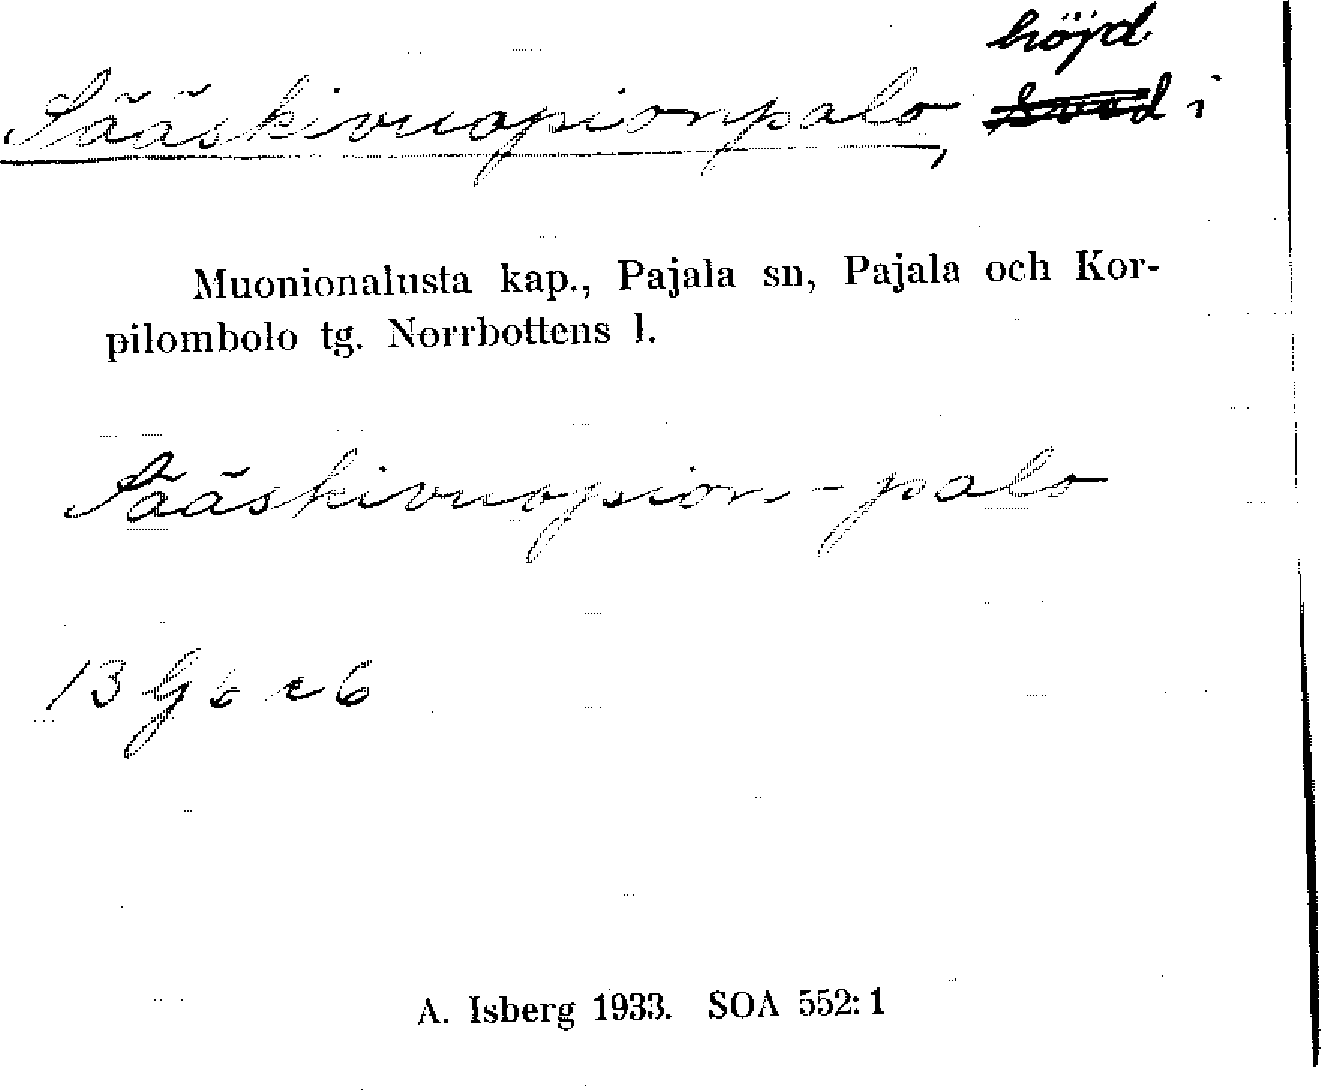 höjd
Sääskivuopionpalo, i
Muonionalusta kap., Pajala sn, Pajala och Kor-
pilombolo tg. Norrbottens l.
Sääskivuopion-palo
13 G b c 6
A. Isberg 1933. SOA 552:1